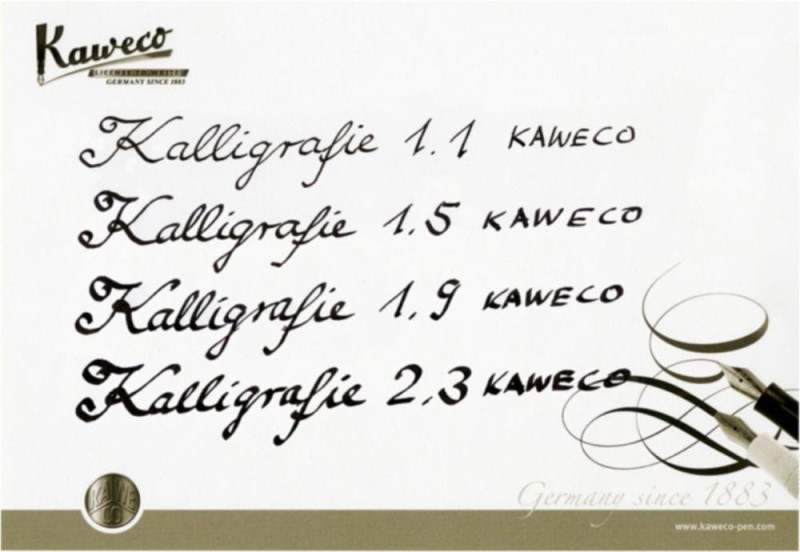 Kaweco
GERMANY SINCE 1883
Kalligrafie 1.1 KAWECO
Kalligrafie 1.5 KAWECO
Kalligrafie 1,9 KAWECO
Kalligrafie 2,3 KAWECO
KAWE
CO
Germany since 1883
www.kaweco-pen.com